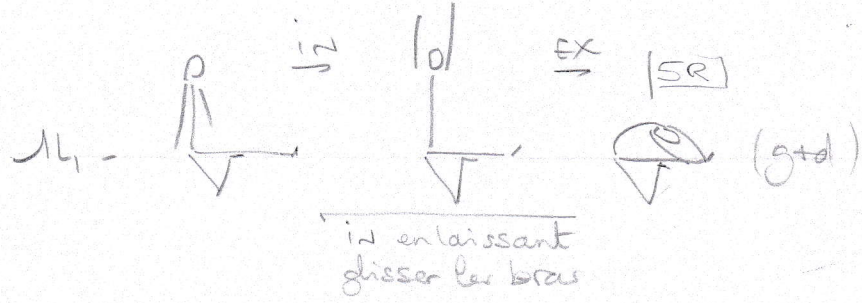 iN
EX
5R
14, - (g+d)
iN en laissant
glisser les bras